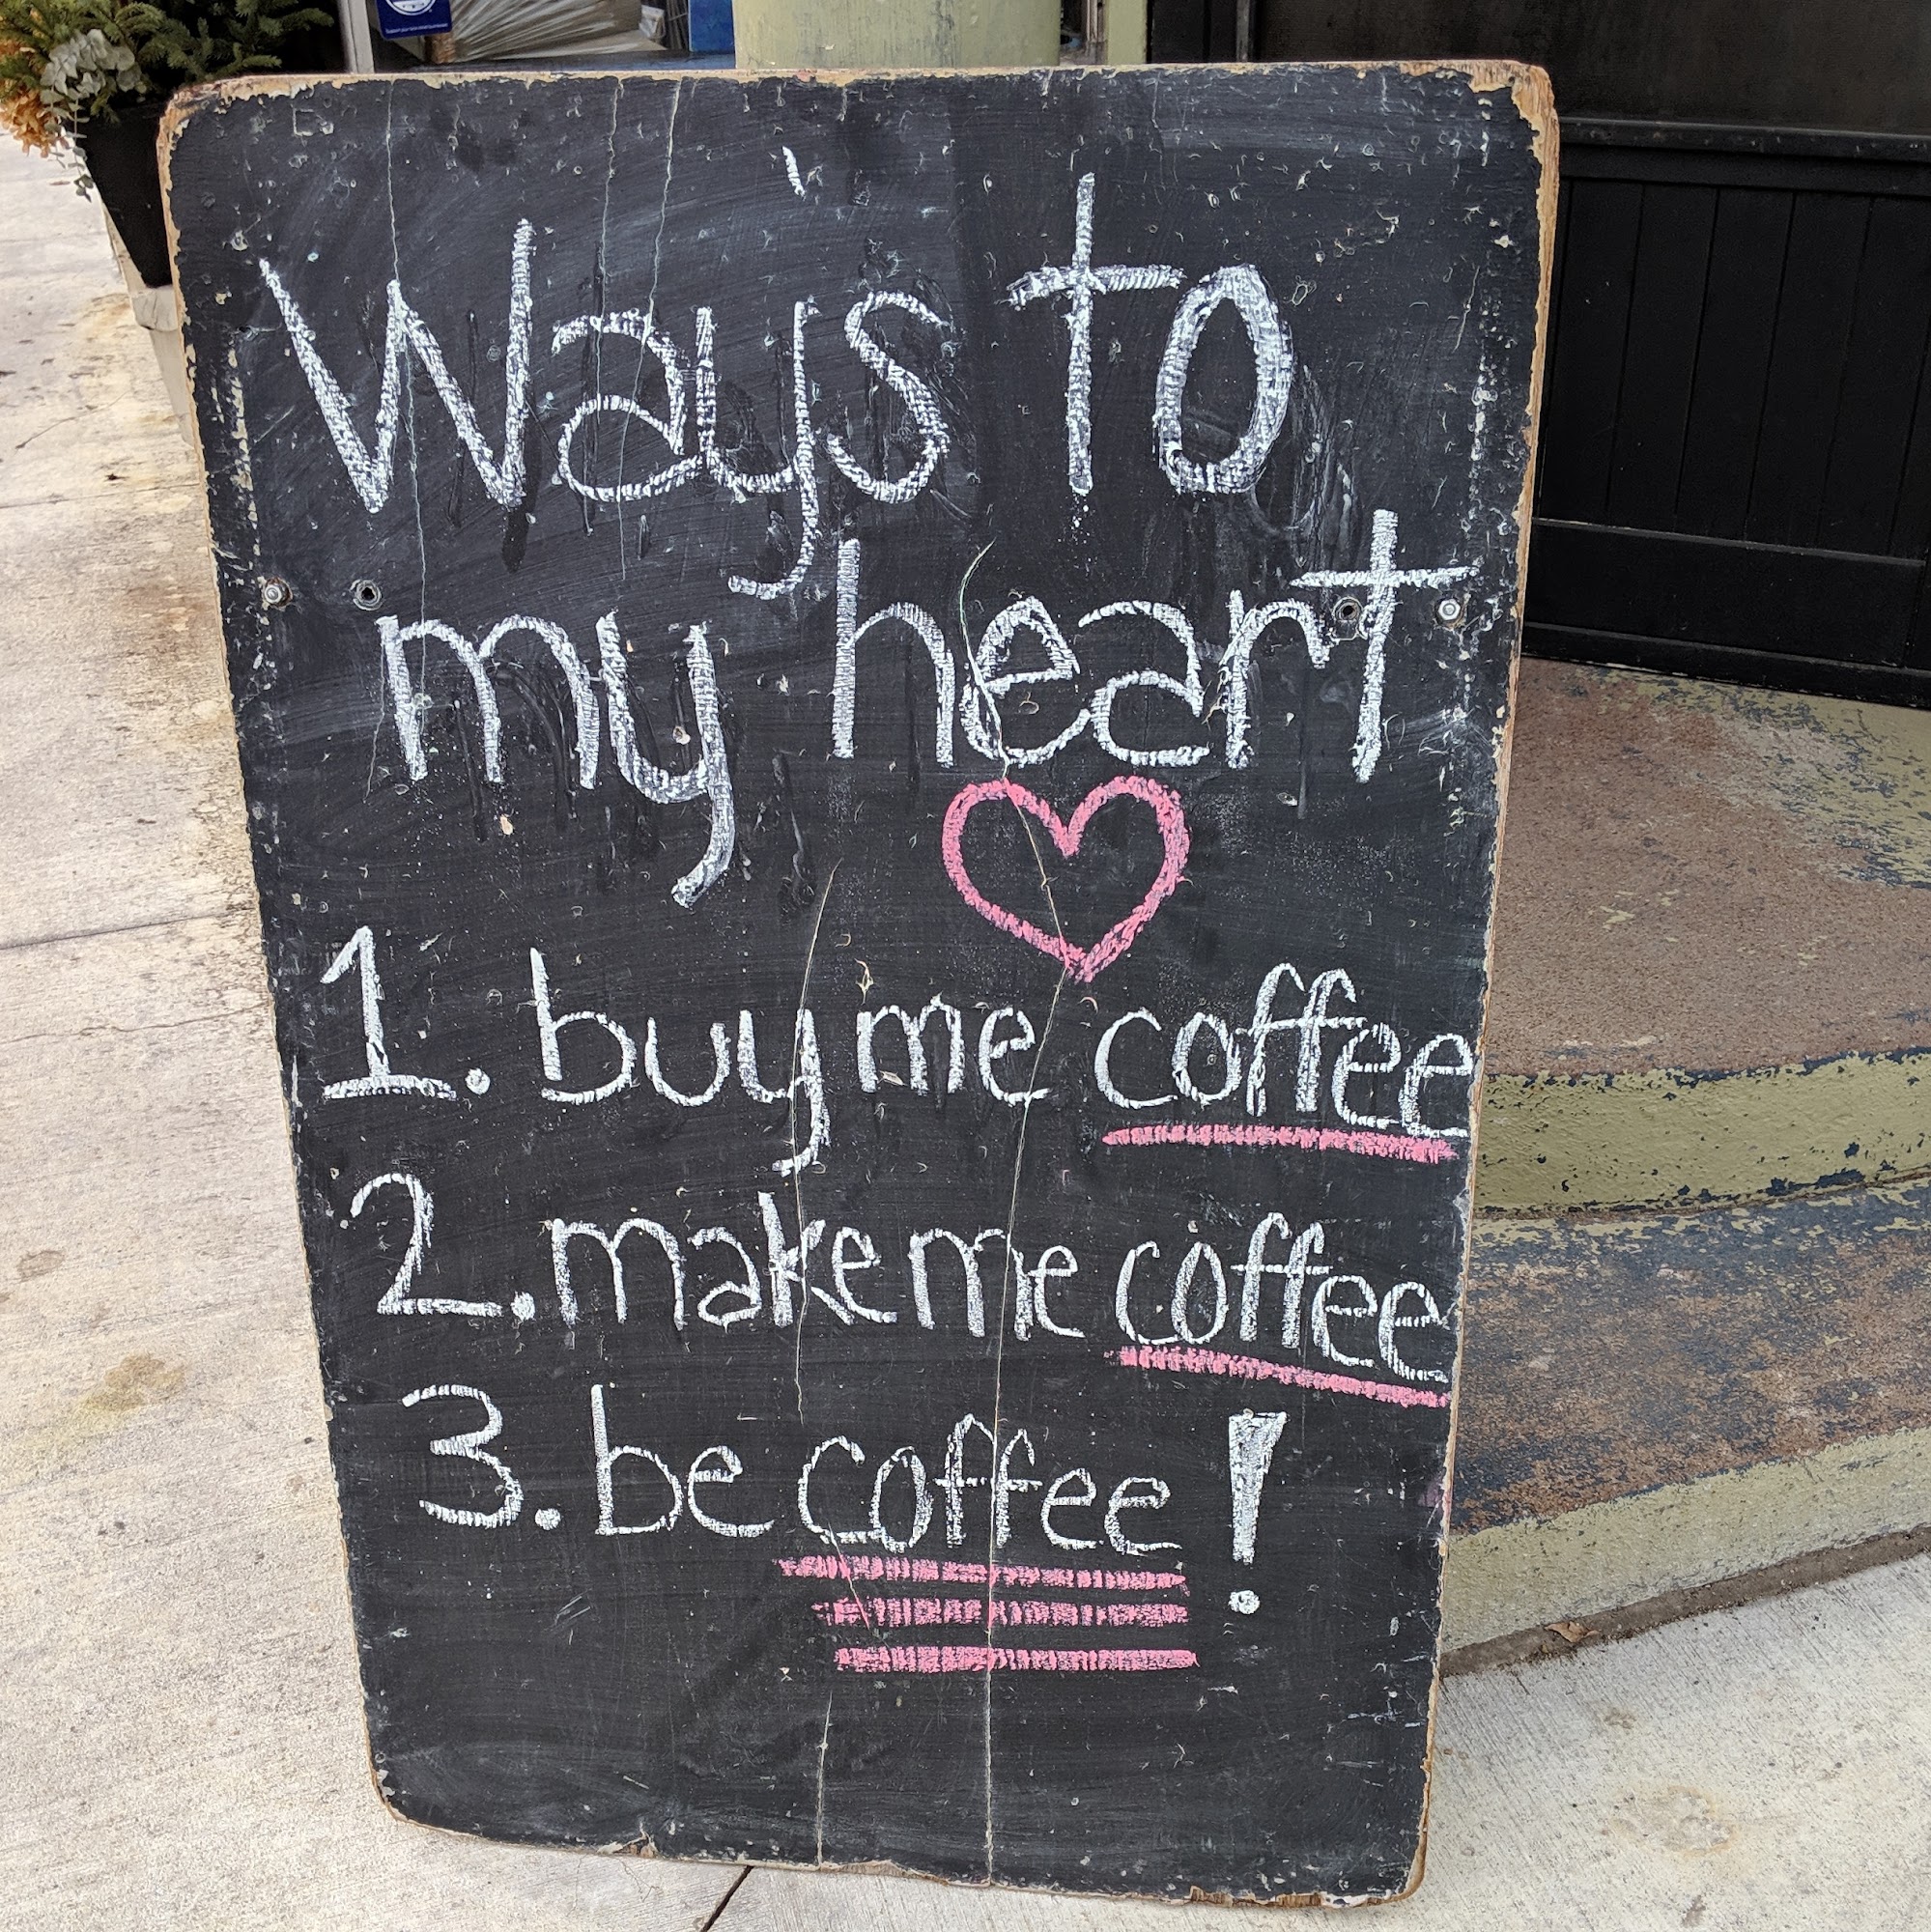 Ways to
my heart
1. buy me coffee
2. make me coffee
3. be coffee!